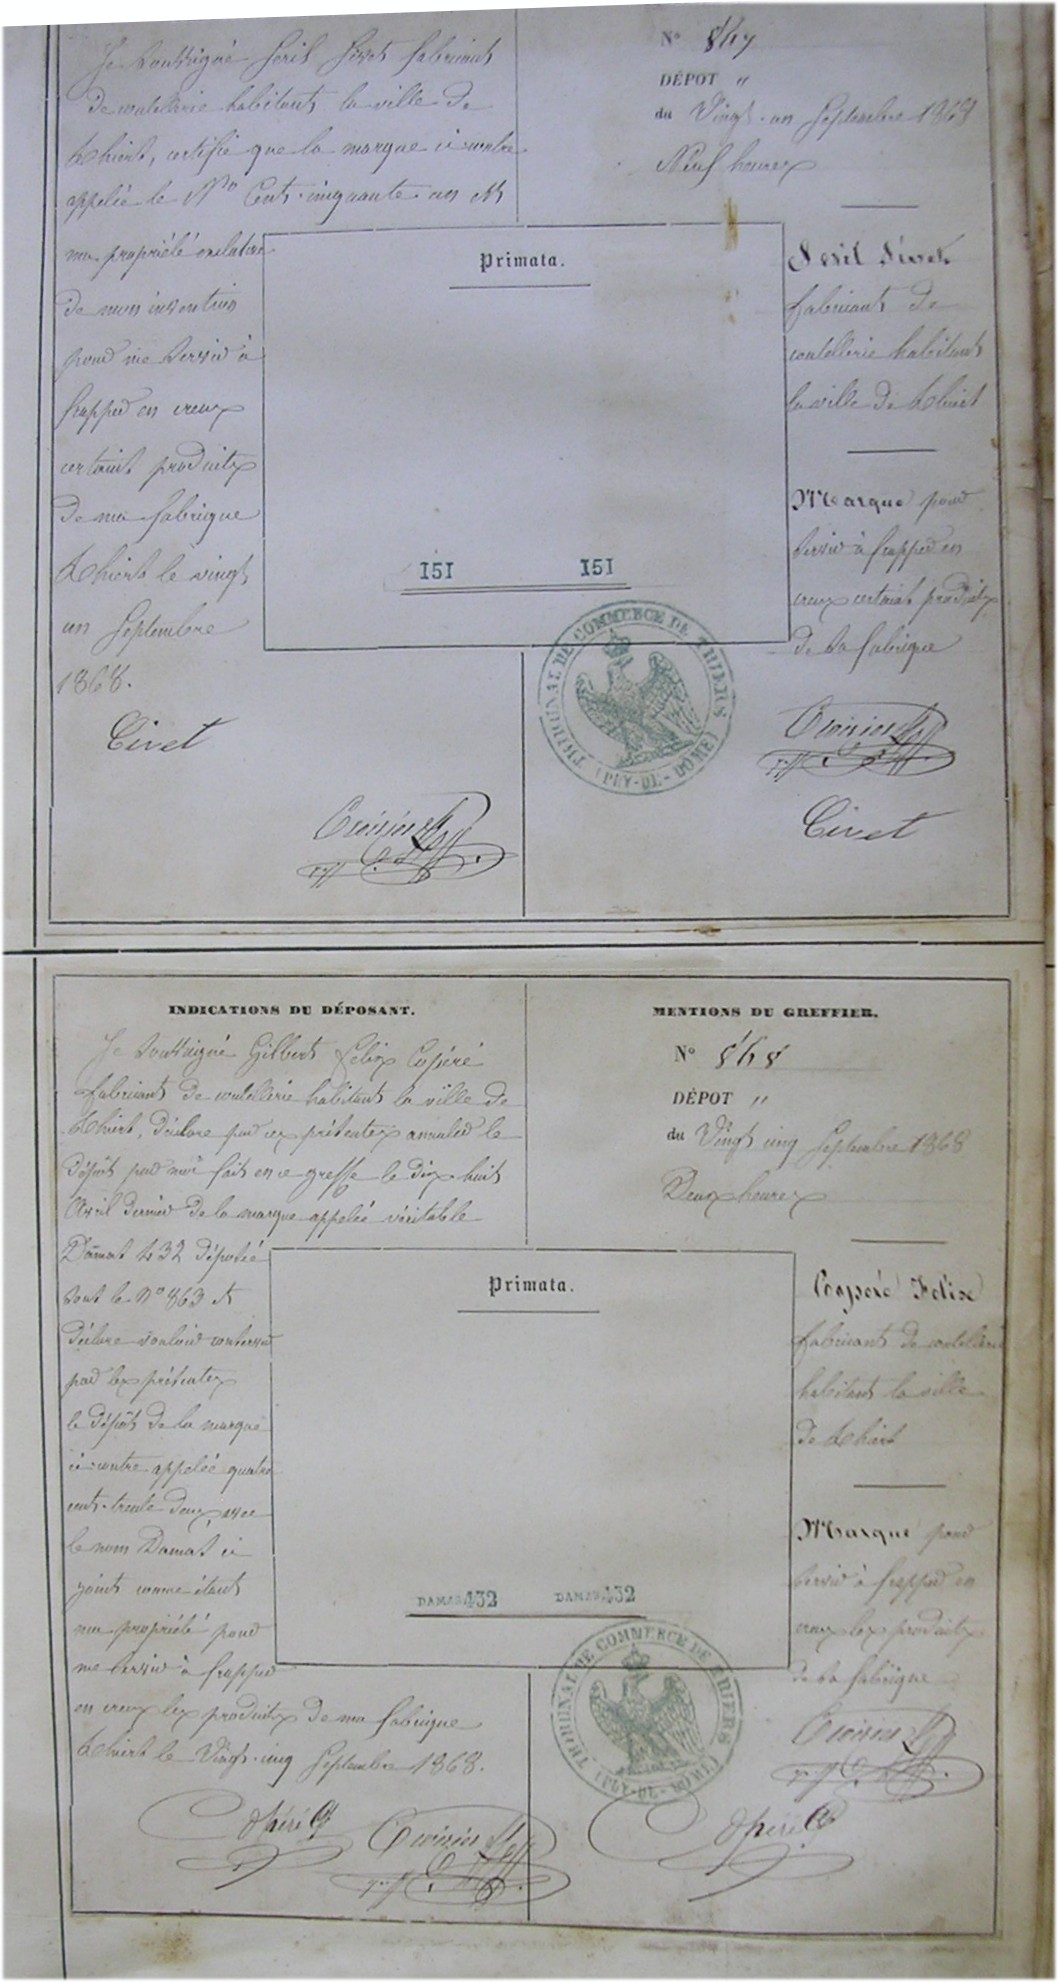 Je soussigné Séril Sivet fabricant
de coutellerie habitant la ville de
Thiers, certifie que la marque ci-contre
appelée le N° Cent-cinquante-un est
ma propriété exclusive
de mon invention
pour me servir à
frapper en creux
certains produits
de ma fabrique
Thiers le vingt
un Septembre
1868.
Civet
N° 847
DÉPOT "
du Vingt-un Septembre 1868
Neuf heures
Primata.
151 151
TRIBUNAL DE COMMERCE DE THIERS
(PUY-DE-DÔME)
fabricant de
coutellerie habitant
la ville de Thiers
Marque pour
servir à frapper en
creux certains produits
de sa fabrique
Civet
INDICATIONS DU DÉPOSANT.
Je soussigné Gilbert Felix Copéré
fabricant de coutellerie habitant la ville de
Thiers, déclare par ces présentes annuler le
dépôt par moi fait en ce greffe le dix huit
Avril dernier de la marque appelée véritable
Damas 432 déposée
sous le N° 863 et
déclare vouloir conserver
par les présentes
le dépôt de la marque
ci-contre appelée quatre
cent-trente deux, avec
le nom Damas ci
joint comme étant
ma propriété pour
me servir à frapper
en creux les produits de ma fabrique
Thiers le Vingt-cinq Septembre 1868.
MENTIONS DU GREFFIER.
N° 848
DÉPOT "
du Vingt cinq Septembre 1868
Deux heures
Primata.
DAMAS 432 DAMAS 432
TRIBUNAL DE COMMERCE DE THIERS
(PUY-DE-DÔME)
Copéré Felix
fabricant de coutellerie
habitant la ville
de Thiers
Marque pour
servir à frapper en
creux les produits
de sa fabrique